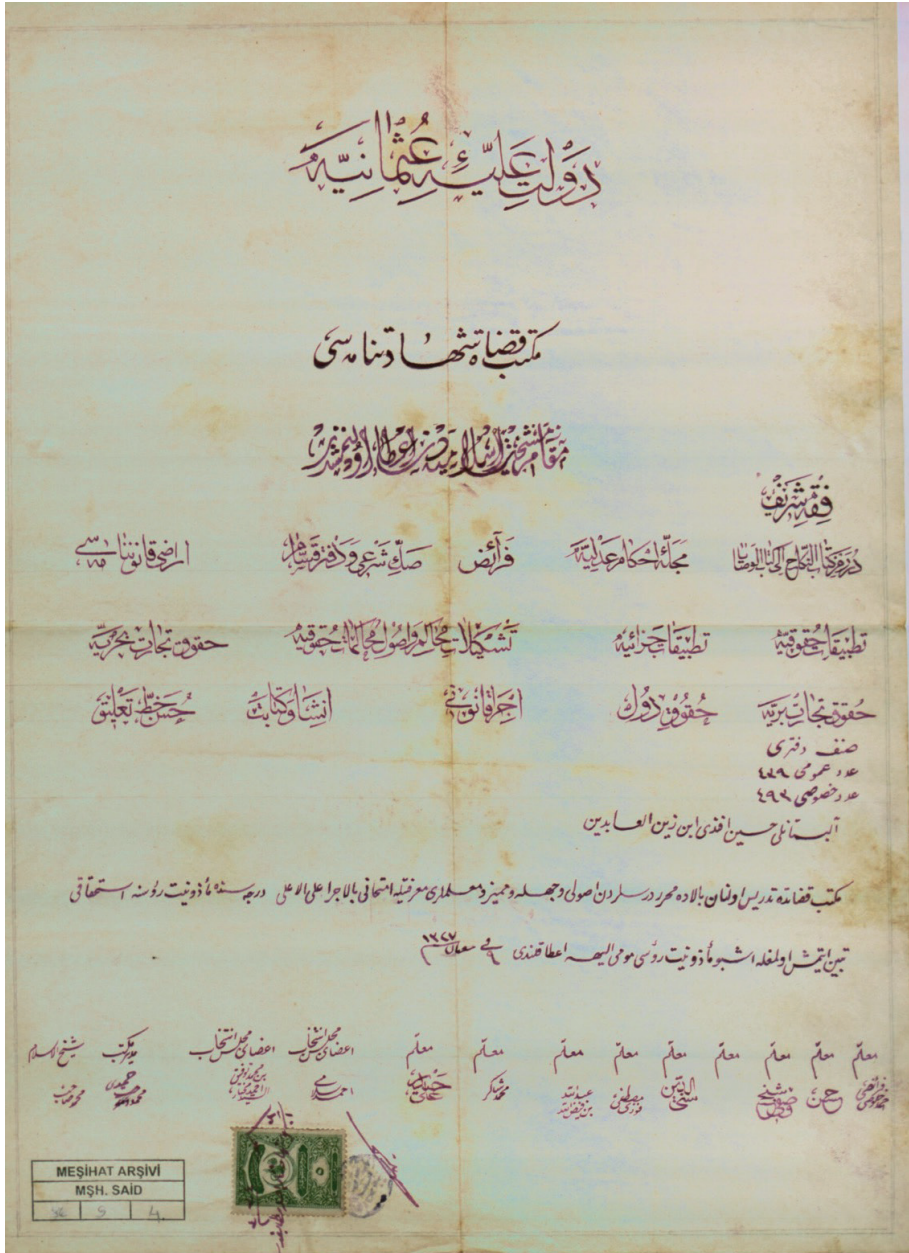 دَوْلَتِ عَلِيَّهِٔ عُثْمَانِيَّه
مكتب قضاة شهادتنامه سی
مقام مشیخت اسلامیه دن اعطا اولنمشدر
فقه شریف
درر من كتاب النكاح الی كتاب الوصایا مجلّهٔ احكام عدلیّه فرائض صكّ شرعی و دفتر قسّام اراضی قانوننامه سی
تطبیقات حقوقیه تطبیقات جزائیه تشكیلات محاكم و اصول محاكمات حقوقیه حقوق تجارت بحریّه
حقوق تجارت بریّه حقوق دول اجرا قانونی انشا و كتابت حسن خطّ تعلیق
صنف دفتری
عدد عمومی ٤٣٩
عدد خصوصی ٤٩٣
البستانلی حسین افندی ابن زین العابدین
مكتب قضاتده تدریس اولنان بالاده محرر درسلردن اصولی وجهله و ممیز و معلملری معرفتیله امتحانی بالاجرا علی الاعلی درجه سنده مأذونیت رؤسنه استحقاقی
تبین ایتمش اولمغله اشبو مأذونیت رؤسی مومی الیهه اعطا قلندی فی ٩ ١٣٢٧
معلم معلم معلم معلم معلم معلم معلم معلم معلم اعضای مجلس انتخاب اعضای مجلس انتخاب مدیر مكتب شیخ الاسلام
حسن مصطفی عبدالله محمد شاكر علی حیدر احمد
MEŞİHAT ARŞİVİ
MŞH. SAİD
5 4